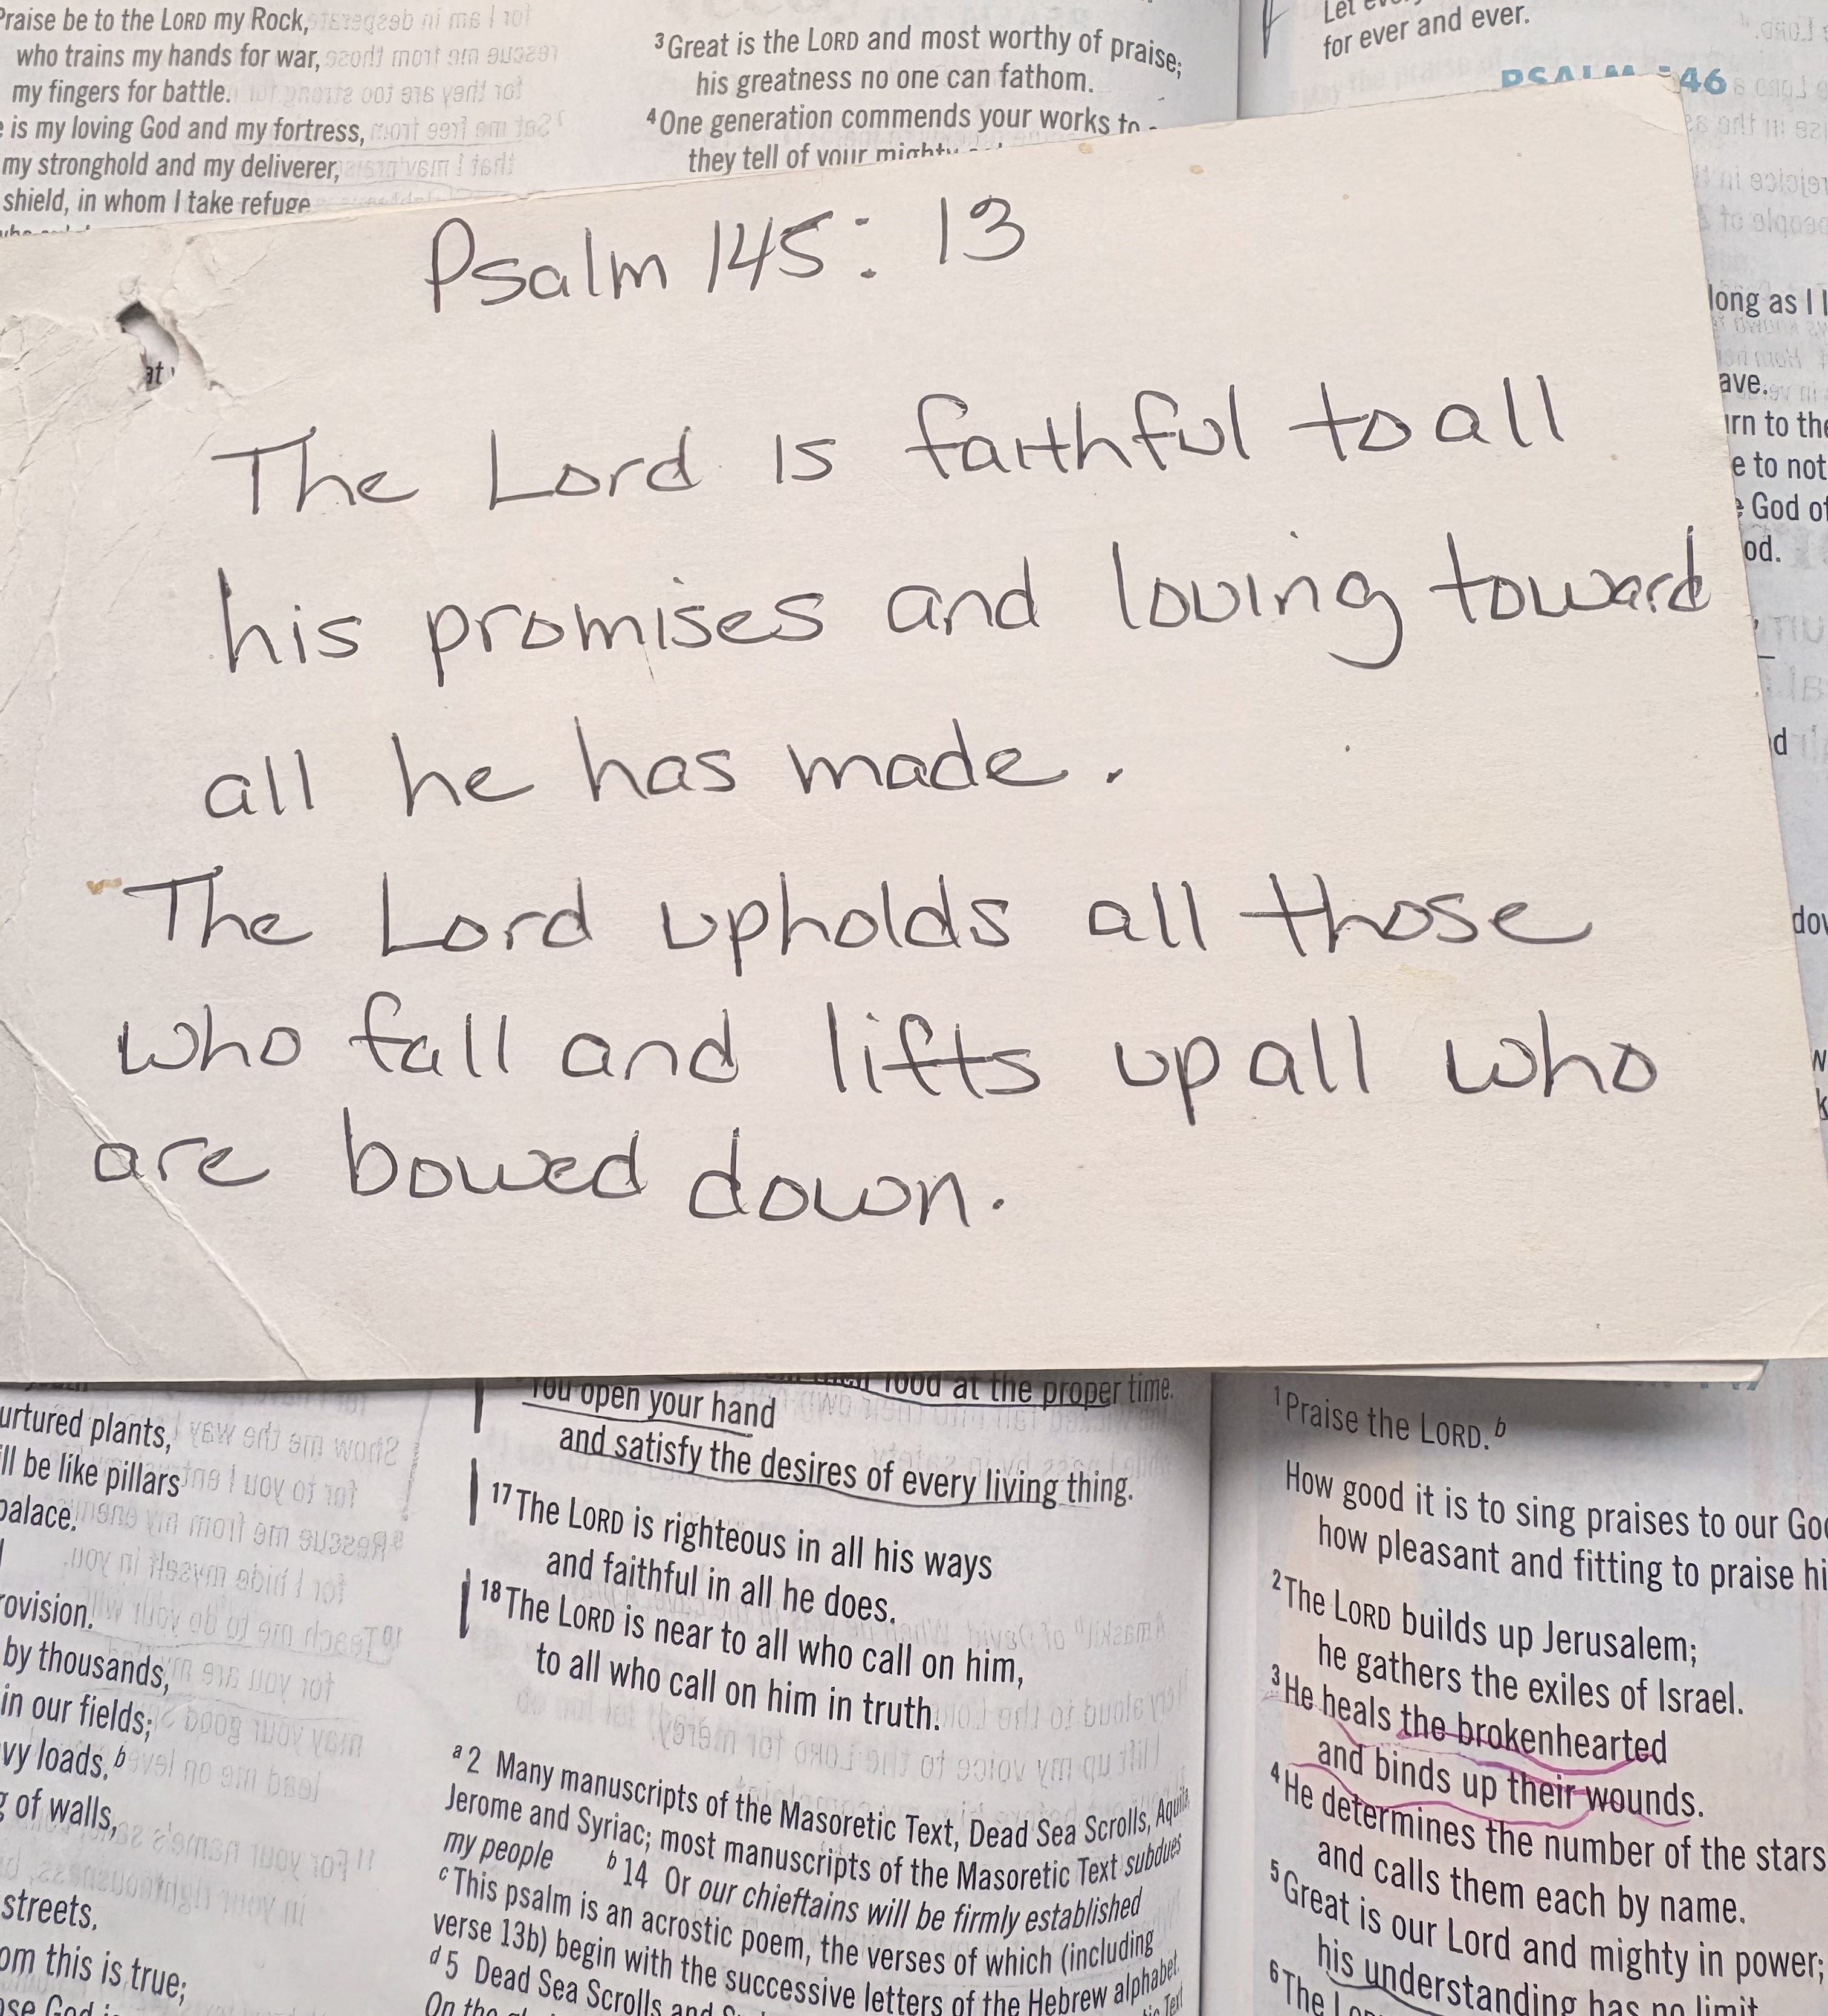 Praise be to the LORD my Rock,
who trains my hands for war,
my fingers for battle.
is my loving God and my fortress,
my stronghold and my deliverer,
shield, in whom I take refuge
3 Great is the LORD and most worthy of praise;
his greatness no one can fathom.
4 One generation commends your works to
they tell of your mighty
Let
for ever and ever.
PSALM 146
long as I
to the
to not
God of
Psalm 145: 13
The Lord is faithful to all
his promises and loving toward
all he has made.
The Lord upholds all those
who fall and lifts up all who
are bowed down.
plants,
be like pillars
palace.
by thousands,
in our fields;
loads. b
of walls,
streets.
this is true;
God
food at the proper time.
You open your hand
and satisfy the desires of every living thing.
17 The LORD is righteous in all his ways
and faithful in all he does.
18 The LORD is near to all who call on him,
to all who call on him in truth.
a 2 Many manuscripts of the Masoretic Text, Dead Sea Scrolls, Aquila,
Jerome and Syriac; most manuscripts of the Masoretic Text subdues
my people b 14 Or our chieftains will be firmly established
c This psalm is an acrostic poem, the verses of which (including
verse 13b) begin with the successive letters of the Hebrew alphabet.
d 5 Dead Sea Scrolls and
On the
Text
1 Praise the LORD. b
How good it is to sing praises to our
how pleasant and fitting to praise
2 The LORD builds up Jerusalem;
he gathers the exiles of Israel.
3 He heals the brokenhearted
and binds up their wounds.
4 He determines the number of the stars
and calls them each by name.
5 Great is our Lord and mighty in power;
his understanding has no limit
6 The